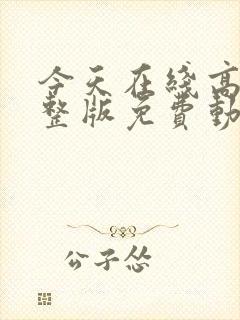 今天在綫高
整版免費動
公子怂